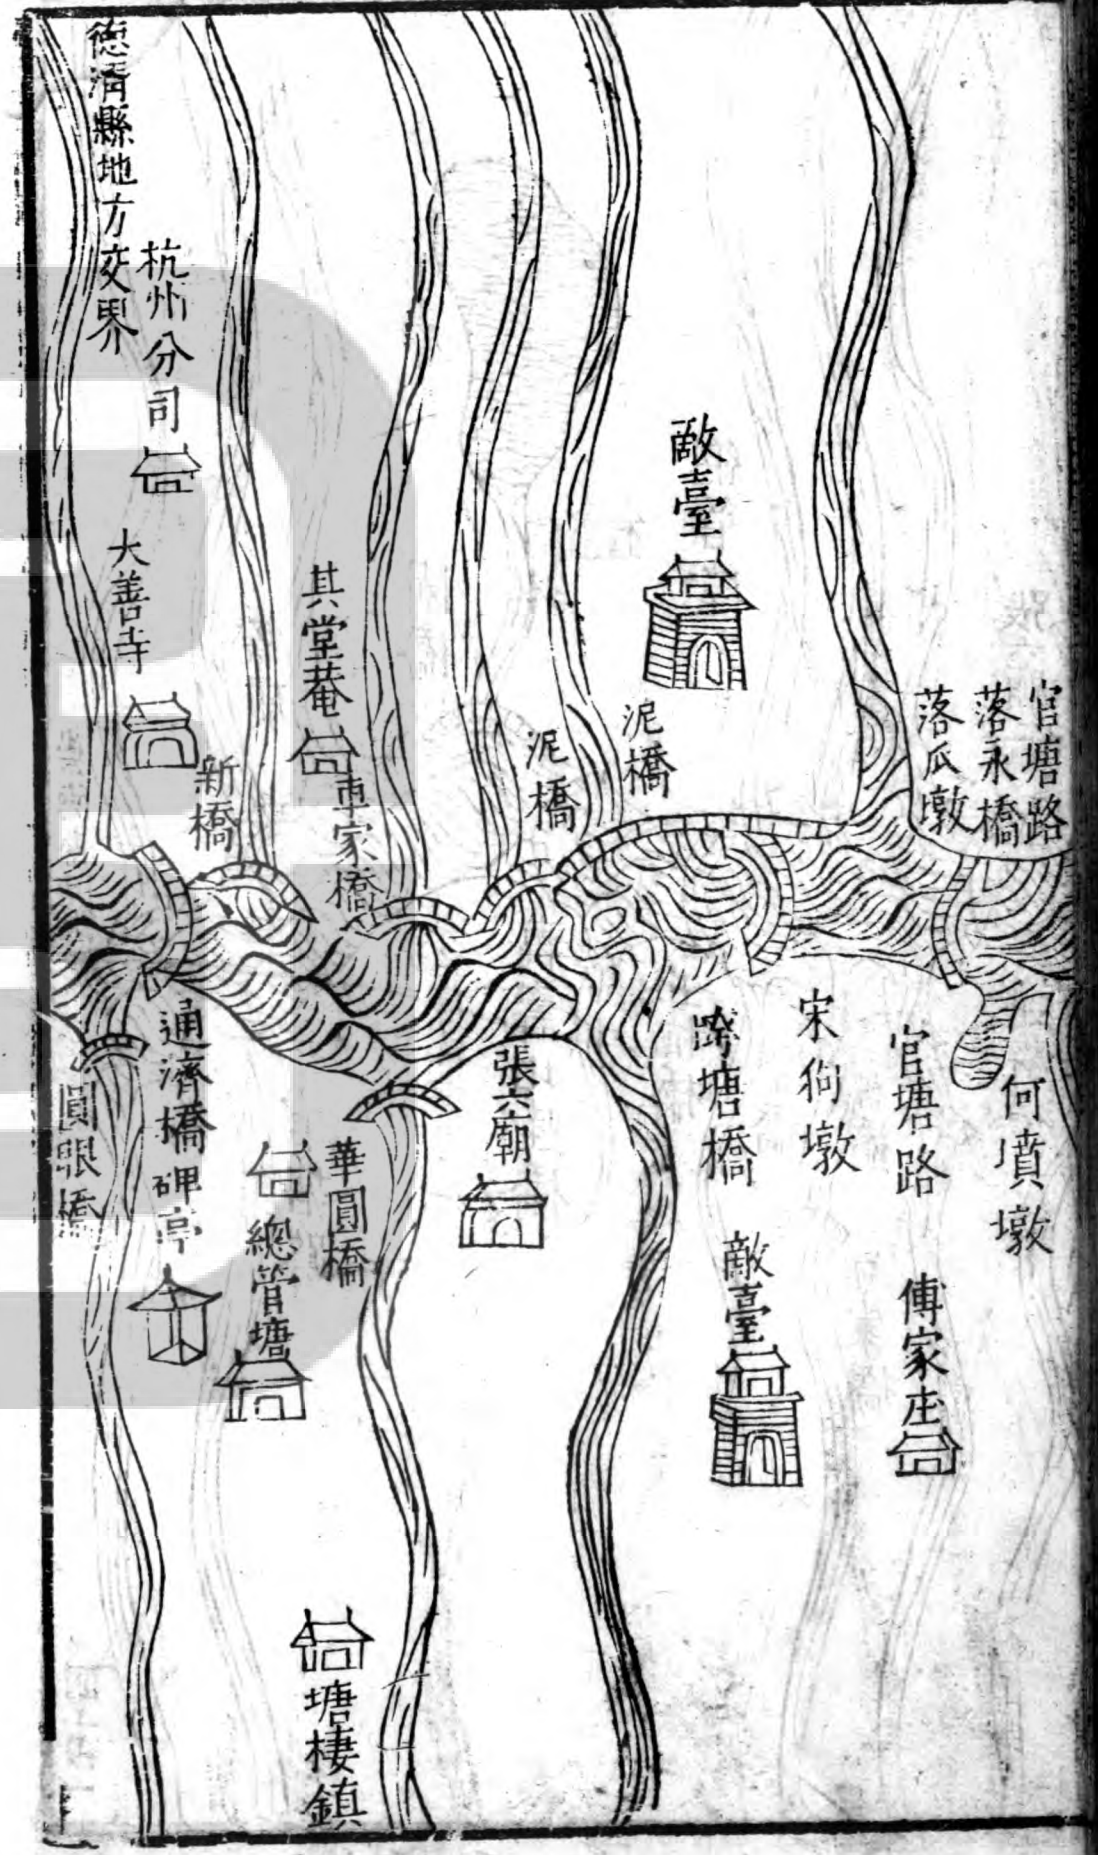 官塘路
落永橋
落瓜墩
敵臺
泥橋
泥橋
其堂菴
車家橋
新橋
杭州分司
大善寺
德清縣地方交界
何墳墩
官塘路
傅家庄
宋狗墩
跨塘橋
敵臺
張六廟
華圓橋
總管塘
塘棲鎮
通濟橋
碑亭
圓眼橋